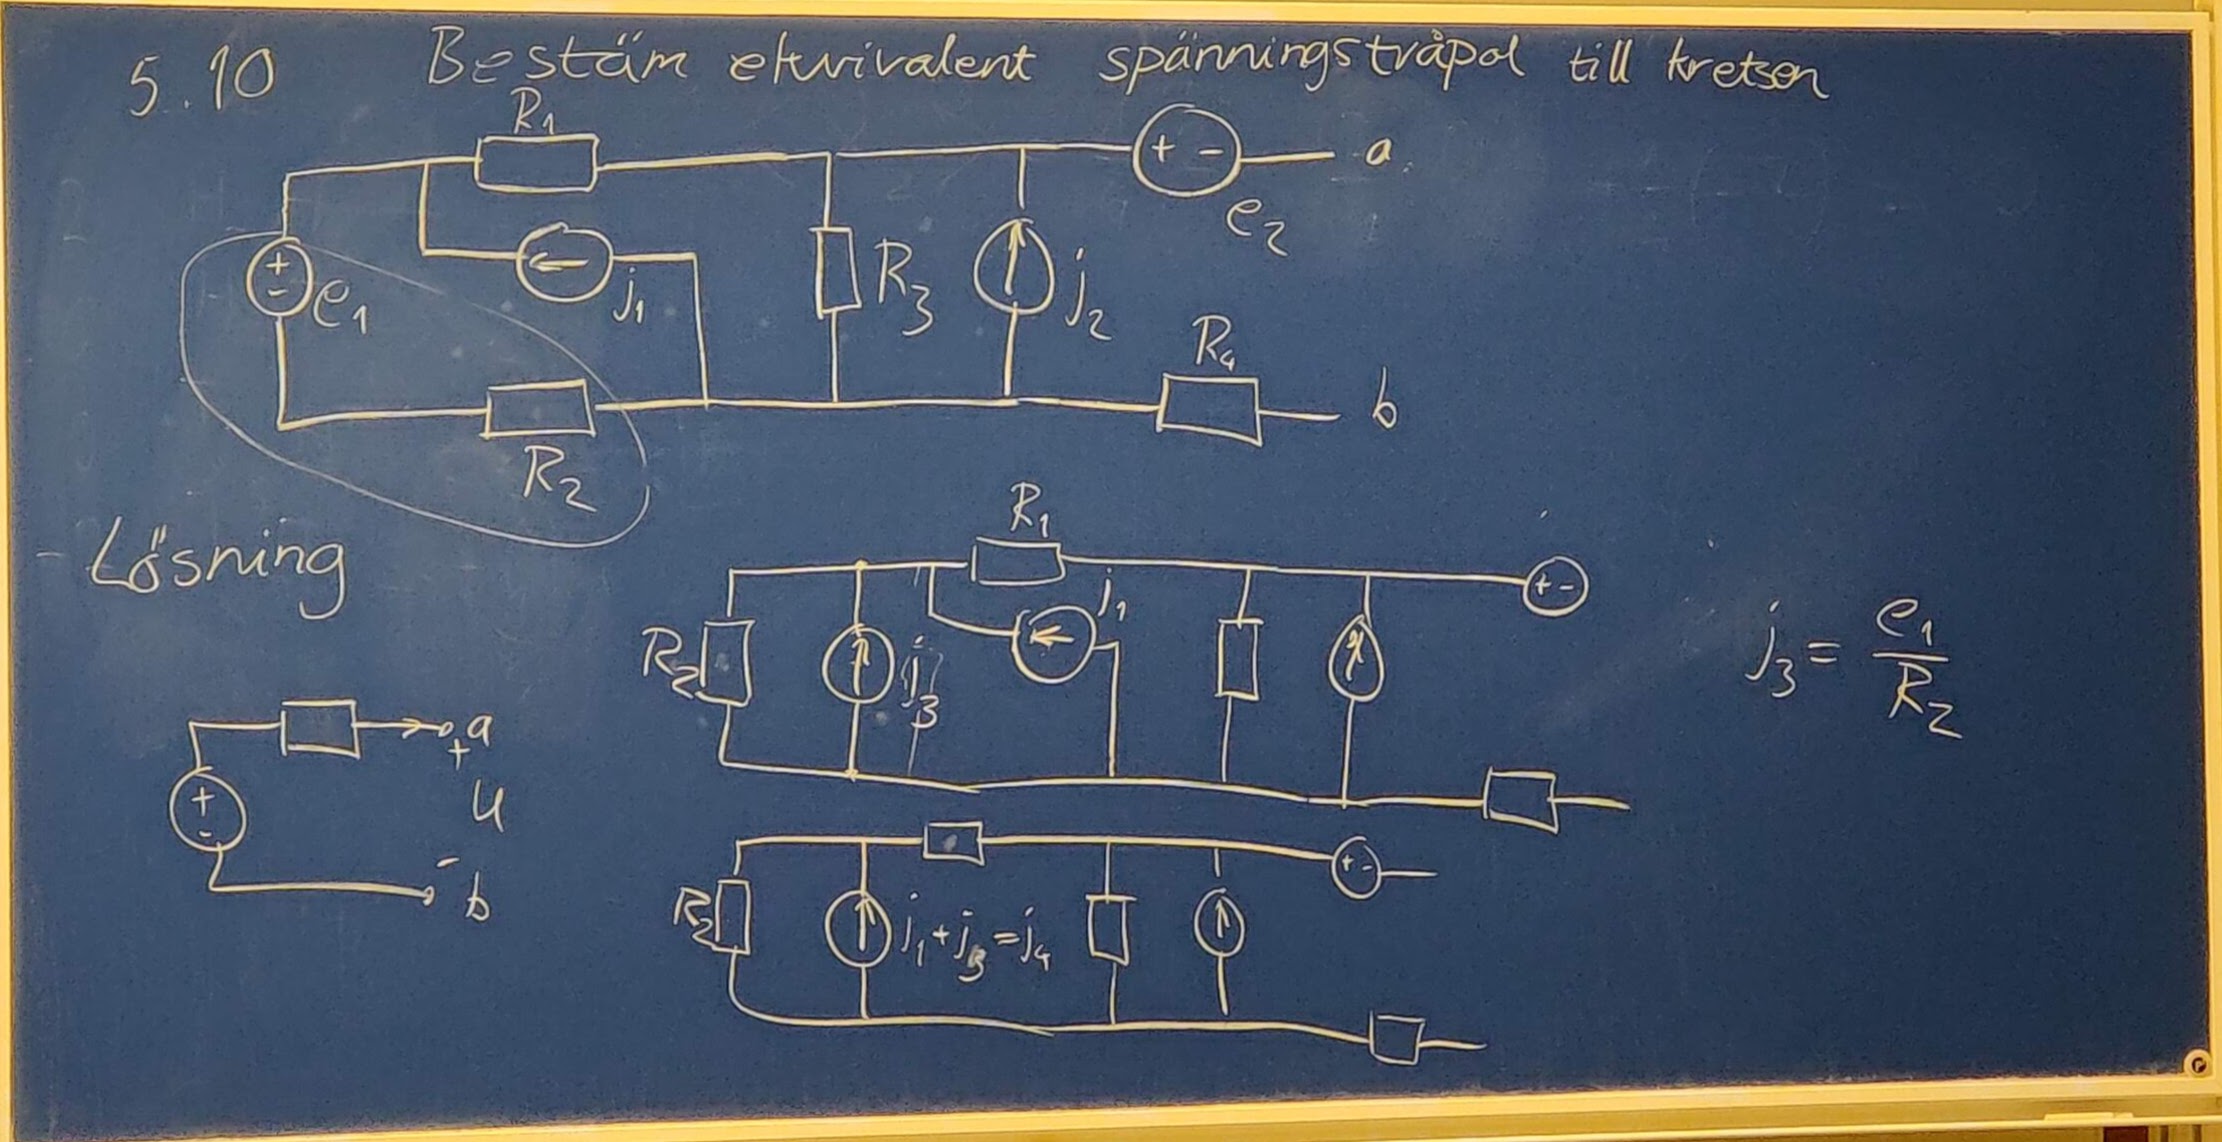 5.10 Bestäm ekvivalent spänningstvåpol till kretsen
R1
+ - a
e2
+
- e1
j1
R3
j2
R4
b
R2
Lösning
R1
+ -
j1
R2
j3
j3 = e1
R2
a
+
+
-
u
-
b
+ -
R2
j1 + j3 = j4